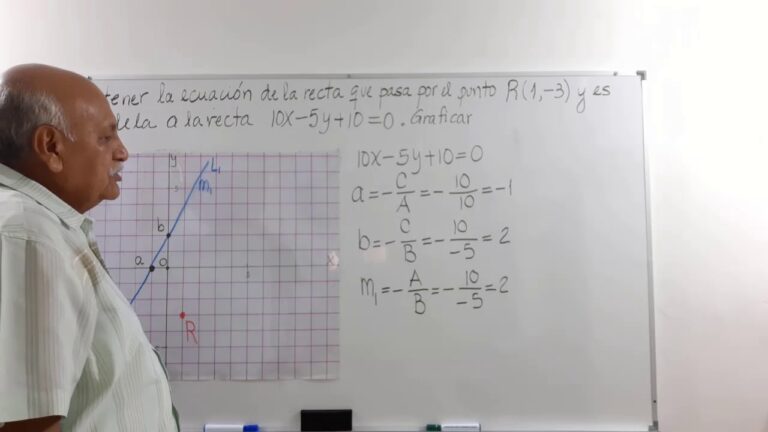 tener la ecuación de la recta que pasa por el punto R(1,-3) y es
a la recta 10x-5y+10=0. Graficar
y
L₁
m₁
b
a
o
x
R
10x-5y+10=0
a=-C/A=-10/10=-1
b=-C/B=-10/-5=2
m₁=-A/B=-10/-5=2